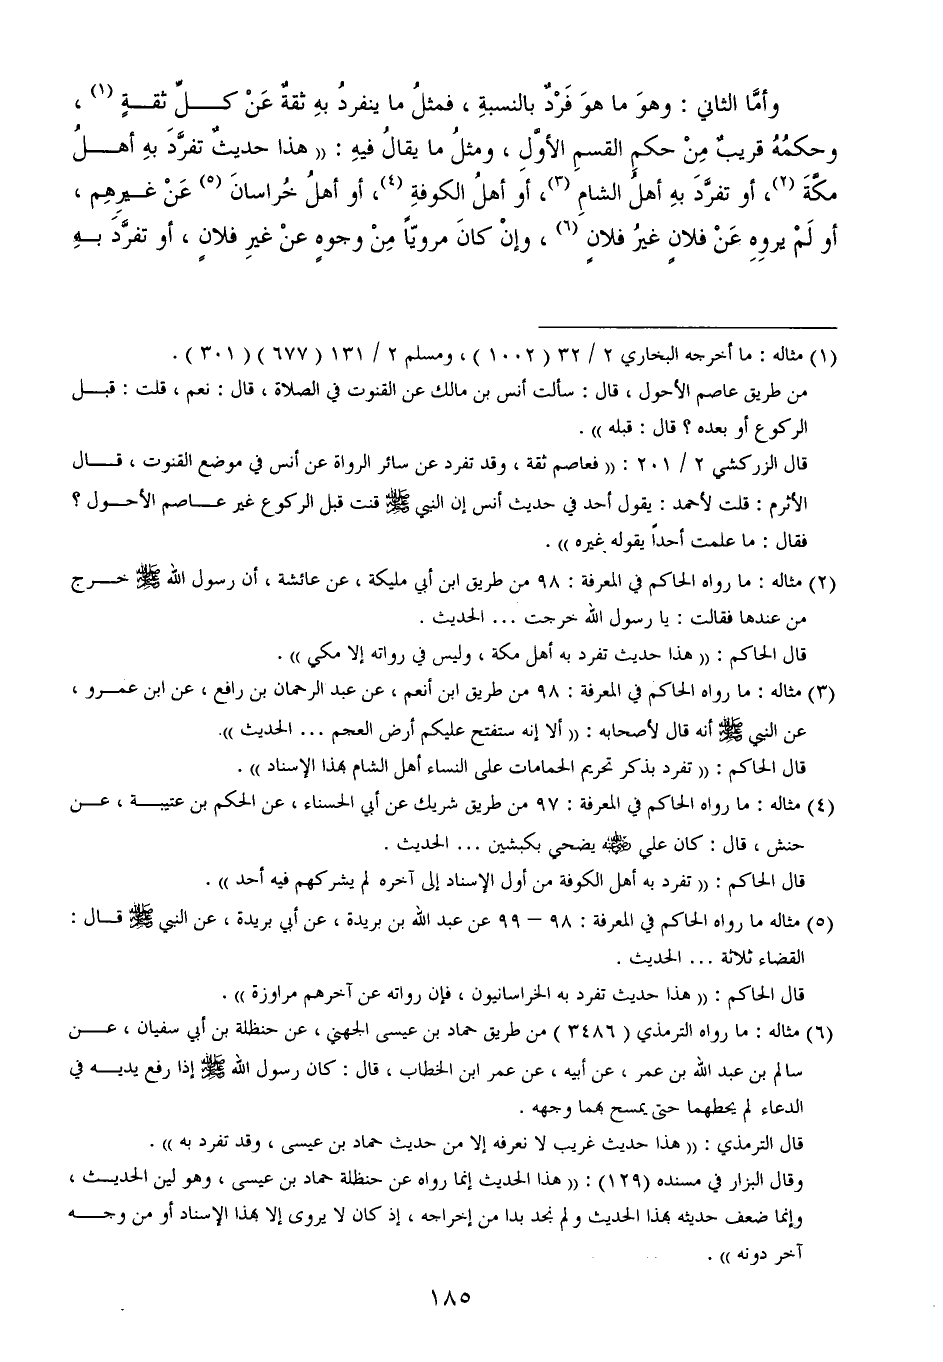 وأمَّا الثاني : وهوَ ما هوَ فَرْدٌ بالنسبةِ ، فمثلُ ما ينفردُ بهِ ثقةٌ عَنْ كـلِّ ثقـةٍ (١) ،
وحكمُهُ قريبٌ مِنْ حكمِ القسمِ الأوَّلِ ، ومثلُ ما يقالُ فيهِ : (( هذا حديثٌ تفرَّدَ بهِ أهـلُ
مكَّةَ (٢)، أو تفرَّدَ بهِ أهلُ الشامِ (٣)، أو أهلُ الكوفةِ (٤)، أو أهلُ خُراسانَ (٥) عَنْ غـيرِهِم ،
أو لَمْ يروِهِ عَنْ فلانٍ غيرُ فلانٍ (٦) ، وإنْ كانَ مرويّاً مِنْ وجوهٍ عنْ غيرِ فلانٍ ، أو تفرَّدَ بـهِ
(١) مثاله : ما أخرجه البخاري ٢ / ٣٢ ( ١٠٠٢ ) ، ومسلم ٢ / ١٣١ ( ٦٧٧ ) ( ٣٠١ ) .
من طريق عاصم الأحول ، قال : سألت أنس بن مالك عن القنوت في الصلاة ، قال : نعم ، قلت : قبـل
الركوع أو بعده ؟ قال : قبله )) .
قال الزركشي ٢ / ٢٠١ : (( فعاصم ثقة ، وقد تفرد عن سائر الرواة عن أنس في موضع القنوت ، قـال
الأثرم : قلت لأحمد : يقول أحد في حديث أنس إن النبي ﷺ قنت قبل الركوع غير عـاصم الأحـول ؟
فقال : ما علمت أحداً يقوله غيره )) .
(٢) مثاله : ما رواه الحاكم في المعرفة : ٩٨ من طريق ابن أبي مليكة ، عن عائشة ، أن رسول الله ﷺ خـرج
من عندها فقالت : يا رسول الله خرجت ... الحديث .
قال الحاكم : (( هذا حديث تفرد به أهل مكة ، وليس في رواته إلا مكي )) .
(٣) مثاله : ما رواه الحاكم في المعرفة : ٩٨ من طريق ابن أنعم ، عن عبد الرحمان بن رافع ، عن ابن عمـرو ،
عن النبي ﷺ أنه قال لأصحابه : (( ألا إنه ستفتح عليكم أرض العجم ... الحديث )).
قال الحاكم : (( تفرد بذكر تحريم الحمامات على النساء أهل الشام بهذا الإسناد )) .
(٤) مثاله : ما رواه الحاكم في المعرفة : ٩٧ من طريق شريك عن أبي الحسناء ، عن الحكم بن عتيبـة ، عـن
حنش ، قال : كان علي رضي الله عنه يضحي بكبشين ... الحديث .
قال الحاكم : (( تفرد به أهل الكوفة من أول الإسناد إلى آخره لم يشركهم فيه أحد )) .
(٥) مثاله ما رواه الحاكم في المعرفة : ٩٨ – ٩٩ عن عبد الله بن بريدة ، عن أبي بريدة ، عن النبي ﷺ قـال :
القضاء ثلاثة ... الحديث .
قال الحاكم : (( هذا حديث تفرد به الخراسانيون ، فإن رواته عن آخرهم مراوزة )) .
(٦) مثاله : ما رواه الترمذي ( ٣٤٨٦ ) من طريق حماد بن عيسى الجهني ، عن حنظلة بن أبي سفيان ، عـن
سالم بن عبد الله بن عمر ، عن أبيه ، عن عمر ابن الخطاب ، قال : كان رسول الله ﷺ إذا رفع يديـه في
الدعاء لم يحطهما حتى يمسح بهما وجهه .
قال الترمذي : (( هذا حديث غريب لا نعرفه إلا من حديث حماد بن عيسى ، وقد تفرد به )) .
وقال البزار في مسنده (١٢٩) : (( هذا الحديث إنما رواه عن حنظلة حماد بن عيسى ، وهو لين الحديـث ،
وإنما ضعف حديثه بهذا الحديث ولم نجد بدا من إخراجه ، إذ كان لا يروى إلا بهذا الإسناد أو من وجـه
آخر دونه )) .
١٨٥